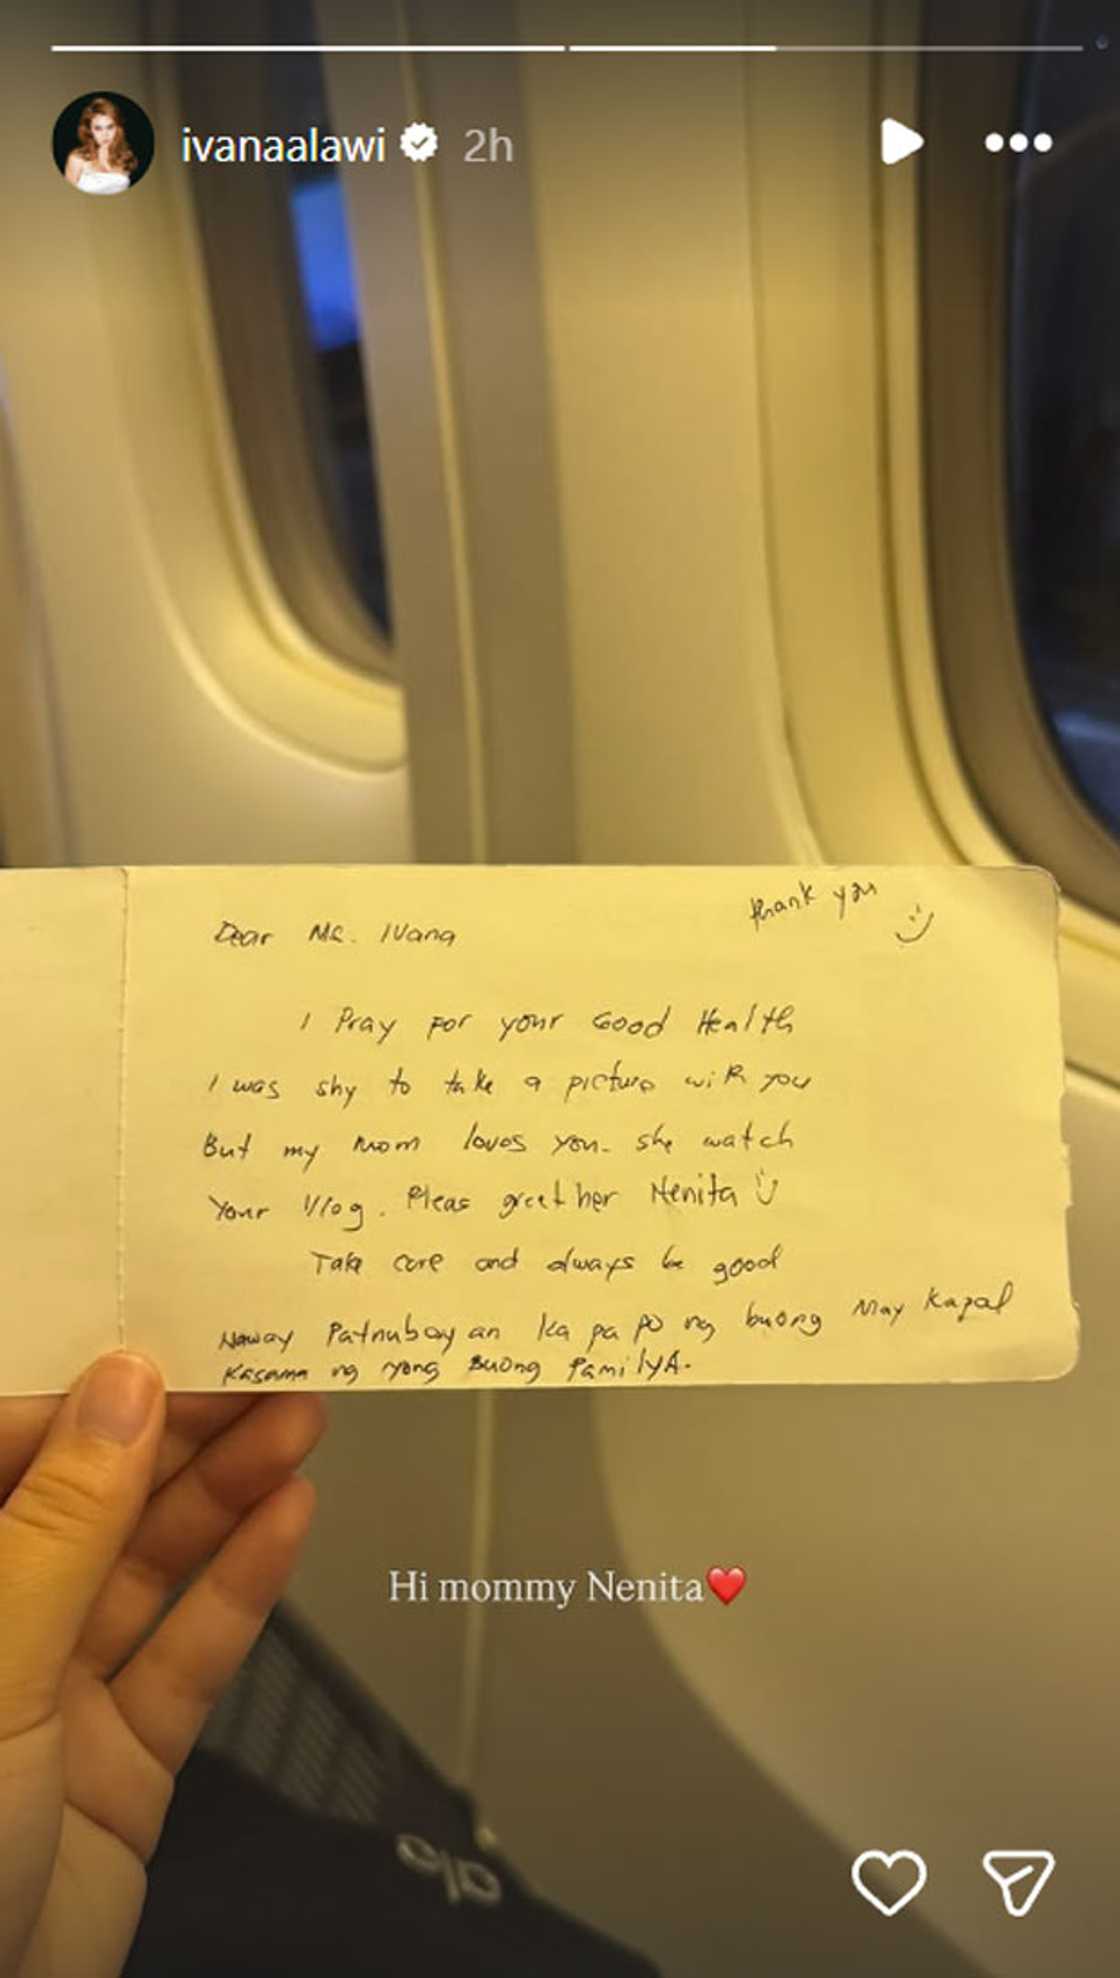 ivanaalawi 2h
thank you
Dear Ms. Ivana
I Pray For your Good Health
I was shy to take a picture with you
But my mom loves you. she watch
Your Vlog. Pleas greet her Nenita
Take care and always be good
Naway Patnubayan ka pa po ng buong May Kapal
Kasama ng iyong Buong PamilyA.
Hi mommy Nenita❤️